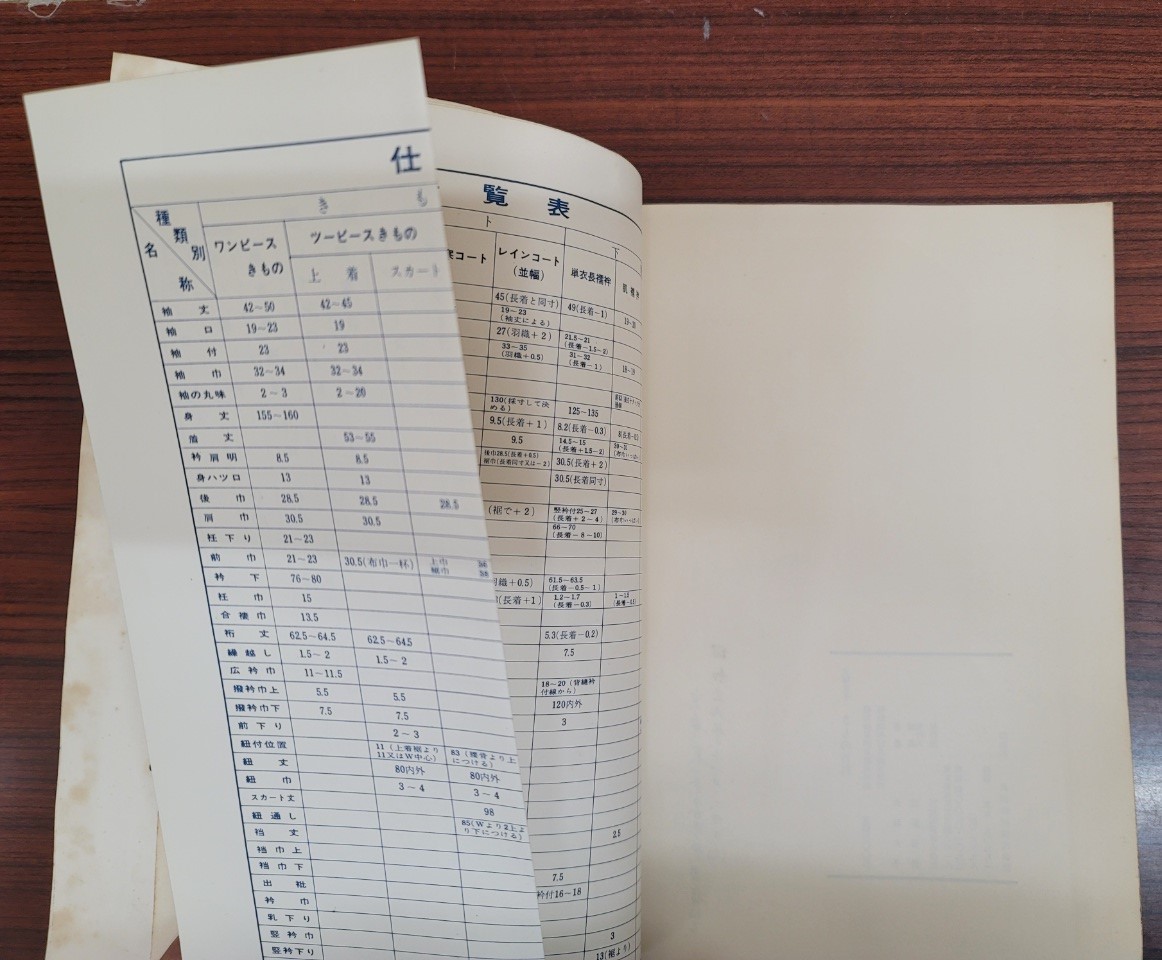 仕
きも
種類別
名称
ワンピースきもの
ツーピースきもの
上着
スカート
袖丈 42~50 42~45
袖口 19~23 19
袖付 23 23
袖巾 32~34 32~34
袖の丸味 2~3 2~20
身丈 155~160
着丈 53~55
衿肩明 8.5 8.5
身ハツロ 13 13
後巾 28.5 28.5 28.5
肩巾 30.5 30.5
衽下り 21~23
前巾 21~23 30.5(布巾一杯) 上巾 裾巾
衿下 76~80
衽巾 15
合褄巾 13.5
裄丈 62.5~64.5 62.5~64.5
繰越し 1.5~2 1.5~2
広衿巾 11~11.5
撥衿巾上 5.5 5.5
撥衿巾下 7.5 7.5
前下り 2~3
紐付位置 11(上着裾より11又はW中心) 83(腰骨より上につける)
紐丈 80内外 80内外
紐巾 3~4 3~4
スカート丈 98
紐通し 85(Wより2上より下につける)
裆丈
裆巾上
裆巾下
出䘯
衿巾
乳下り
竪衿巾
竪衿下り
覧表
ト
下
コート
レインコート(並幅)
単衣長襦袢
肌襦袢
45(長着と同寸) 49(長着-1)
19~23(袖丈による)
27(羽織+2) 21.5~21(長着-1.5~2)
33~35(羽織+0.5) 31~32(長着-1) 18~19
130(採寸して決める) 125~135
9.5(長着+1) 8.2(長着-0.3)
9.5 14.5~15(長着+1.5~2)
後巾28.5(長着+0.5)裾巾(長着同寸又は-2) 30.5(長着+2)
30.5(長着同寸)
(裾で+2) 竪衿付25~27(長着+2~4)
66~70(長着-8~10)
織+0.5) 61.5~63.5(長着-0.5~1)
(長着+1) 1.2~1.7(長着-0.3)
5.3(長着-0.2)
7.5
18~20(背縫衿付線から)
120内外
3
2.5
7.5
衿付16~18
3
13(裾より)